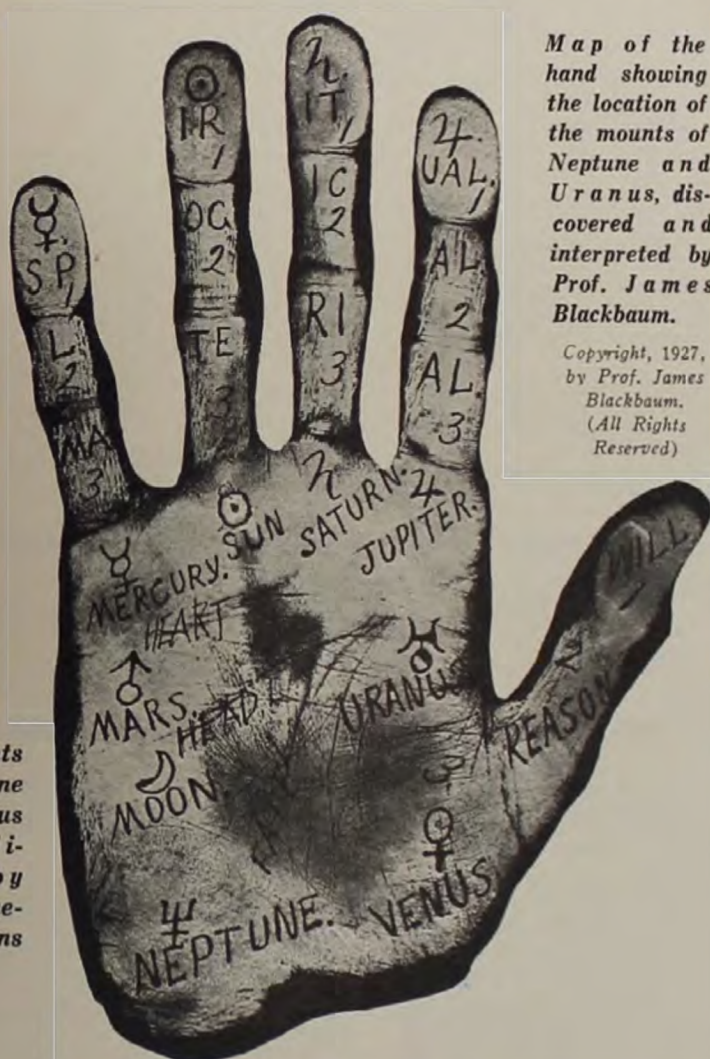 Map of the
hand showing
the location of
the mounts of
Neptune and
Uranus, dis-
covered and
interpreted by
Prof. James
Blackbaum.
Copyright, 1927,
by Prof. James
Blackbaum.
(All Rights
Reserved)
☿
SP,
1
L.
2
MA
3
☉
IR
1
OG
2
TE
3
♄
IT,
1
IC
2
RI
3
♃
UAL.
1
AL
2
AL.
3
WILL
1
2
REASON
☿
MERCURY.
☉
SUN
♄
SATURN.
♃
JUPITER.
HEART
♂
MARS
HEAD
♅
URANUS
☽
MOON.
3
♀
VENUS
♆
NEPTUNE.
ts
ne
us
i-
y
e-
ns